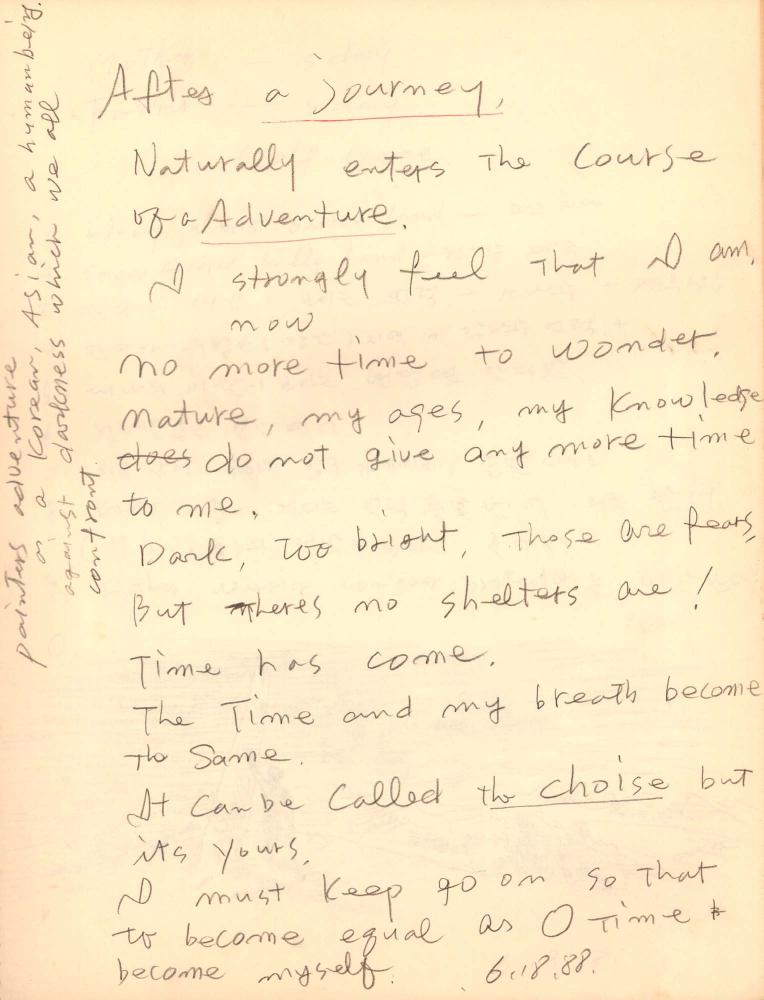 After a journey,
Naturally enters The Course
of a Adventure.
I strongly feel That I am.
now
no more time to wonder.
nature, my ages, my Knowledge
does do not give any more time
to me.
Dark, Too bright, Those are fears,
But Theres no shelters are!
Time has come.
The Time and my breath become
Th Same.
It Can be Called the choise but
its yours,
I must Keep go on so That
to become equal as O Time &
become myself. 6.18.88.
painters adventure
as a Korean, Asian, a human being.
against darkness which we all
confront.